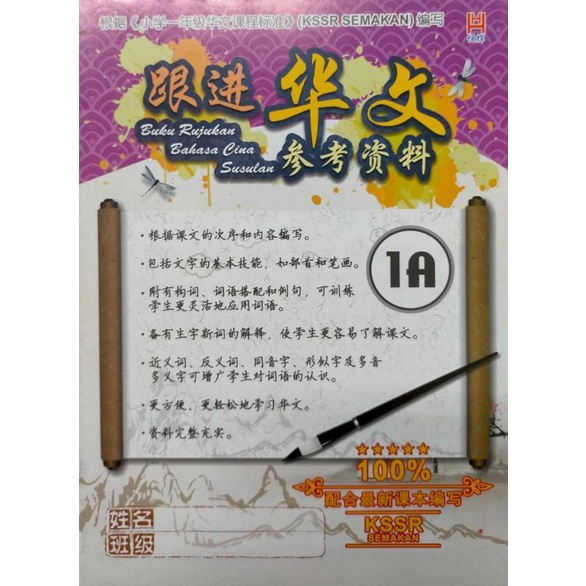 根据《小学一年级华文课程标准》(KSSR SEMAKAN) 编写
跟进 华文
Buku Rujukan
Bahasa Cina
Susulan
参考资料
1A
· 根据课文的次序和内容编写。
· 包括文字的基本技能，如部首和笔画。
· 附有构词、词语搭配和例句，可训练
学生更灵活地应用词语。
· 备有生字新词的解释，使学生更容易了解课文。
· 近义词、反义词、同音字、形似字及多音
多义字可增广学生对词语的认识。
· 更方便、更轻松地学习华文。
· 资料完整充实。
100%
配合最新课本编写
KSSR
SEMAKAN
姓名
班级